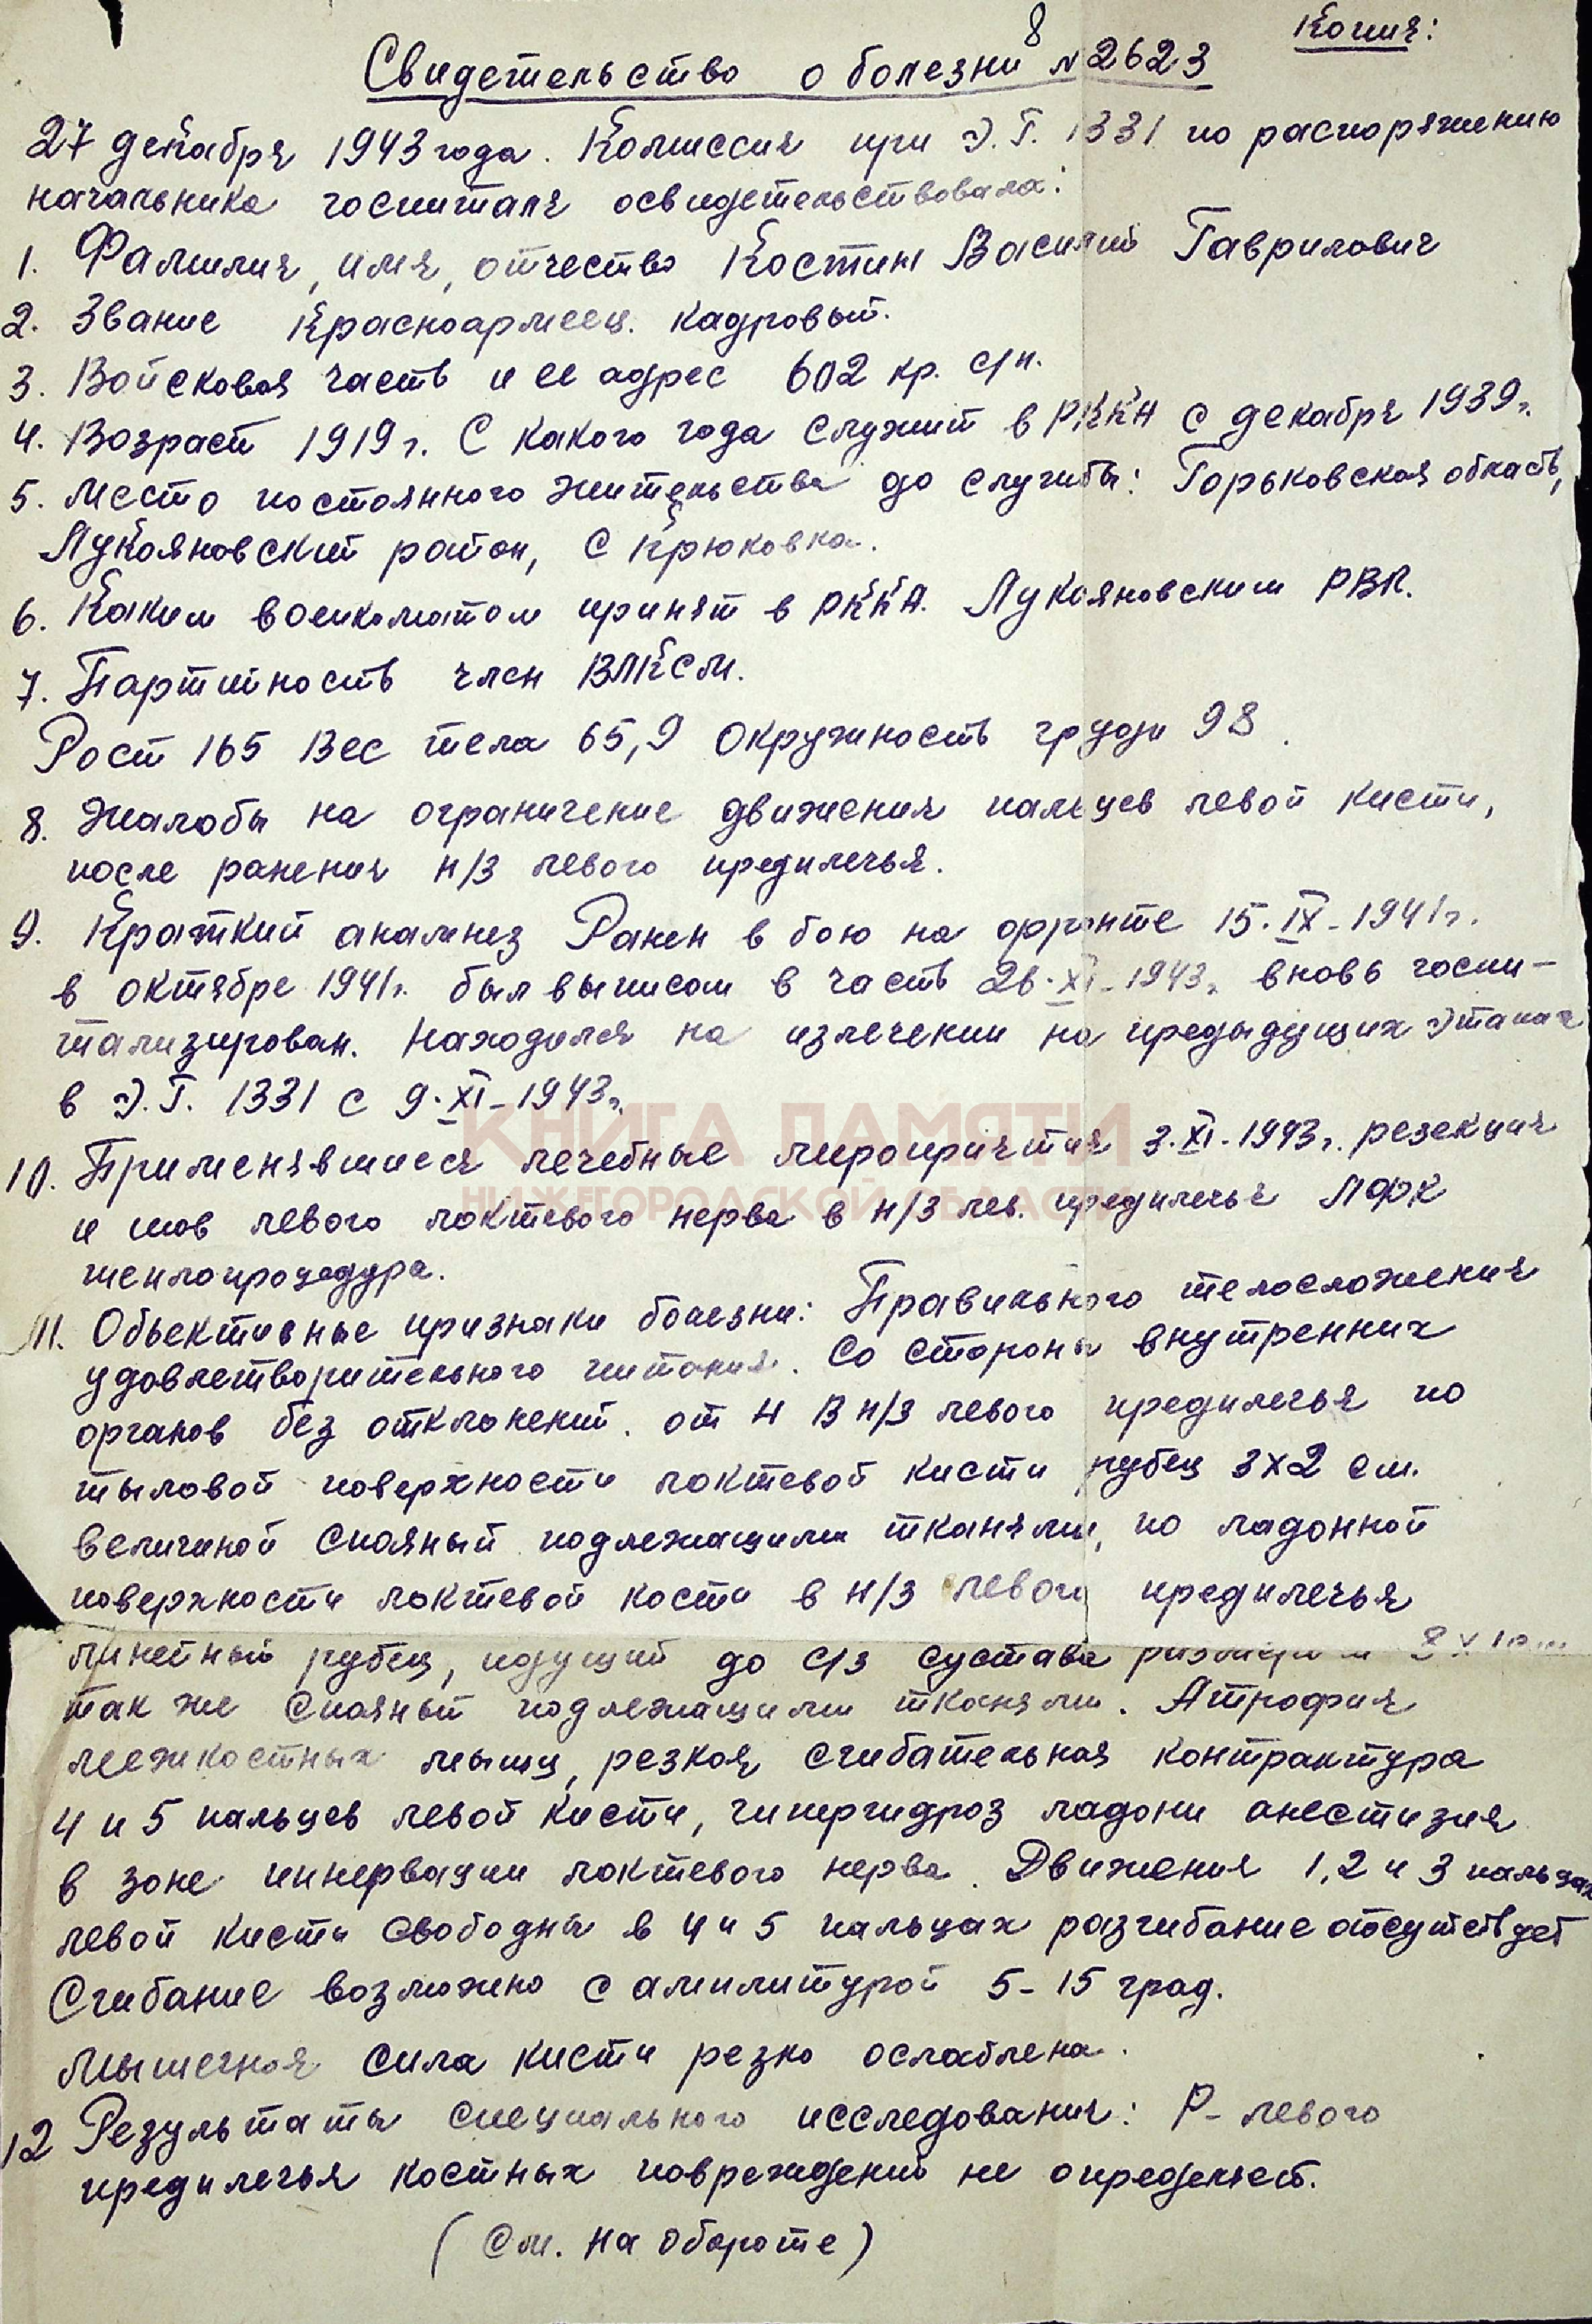 Копия:
8
Свидетельство о болезни №2623
27 декабря 1943 года. Комиссия при Э.Г. 1331 по распоряжению
начальника госпиталя освидетельствовала:
1. Фамилия, имя, отчество Костин Василий Гаврилович
2. Звание Красноармеец. кадровый.
3. Войсковая часть и ее адрес 602 кр. с/п.
4. Возраст 1919 г. С какого года служит в РККА с декабря 1939 г.
5. Место постоянного жительства до службы: Горьковская область,
Лукояновский район, с Крюковка.
6. Каким военкоматом принят в РККА. Лукояновским РВК.
7. Партийность член ВЛКСМ.
Рост 165 Вес тела 65,9 Окружность груди 98.
8. Жалобы на ограничение движения пальцев левой кисти,
после ранения н/3 левого предплечья.
9. Краткий анамнез Ранен в бою на фронте 15.IX-1941г.
в октябре 1941г. был выписан в часть 26.XI-1943г. вновь госпи-
тализирован. Находился на излечении на предыдущих этапах
в Э.Г. 1331 с 9.XI-1943г.
КНИГА ПАМЯТИ
10. Применявшиеся лечебные мероприятия 3.XI.1943г. резекция
НИЖЕГОРОДСКОЙ ОБЛАСТИ
и шов левого локтевого нерва в н/3 лев. предплечья ЛФК
теплопроцедура.
11. Объективные признаки болезни: Правильного телосложения
удовлетворительного питания. Со стороны внутренних
органов без отклонений. от Н В н/3 левого предплечья по
тыловой поверхности локтевой кисти рубец 3х2 см.
величиной спаяный подлежащими тканями, по ладонной
поверхности локтевой кости в н/3 левого предплечья
линейный рубец, идущий до с/3 сустава размером
так же спаяный подлежащими тканями. Атрофия
межкостных мышц, резкая сгибательная контрактура
4 и 5 пальцев левой кисти, гипергидроз ладони анестизия
в зоне иннервации локтевого нерва. Движения 1,2 и 3 пальцах
левой кисти свободны в 4 и 5 пальцах разгибание отсутствует
Сгибание возможно с амплитурой 5-15 град.
Мышечная сила кисти резко ослаблена.
12 Результаты специального исследования: Р- левого
предплечья костных повреждений не определяет.
(См. на обороте)